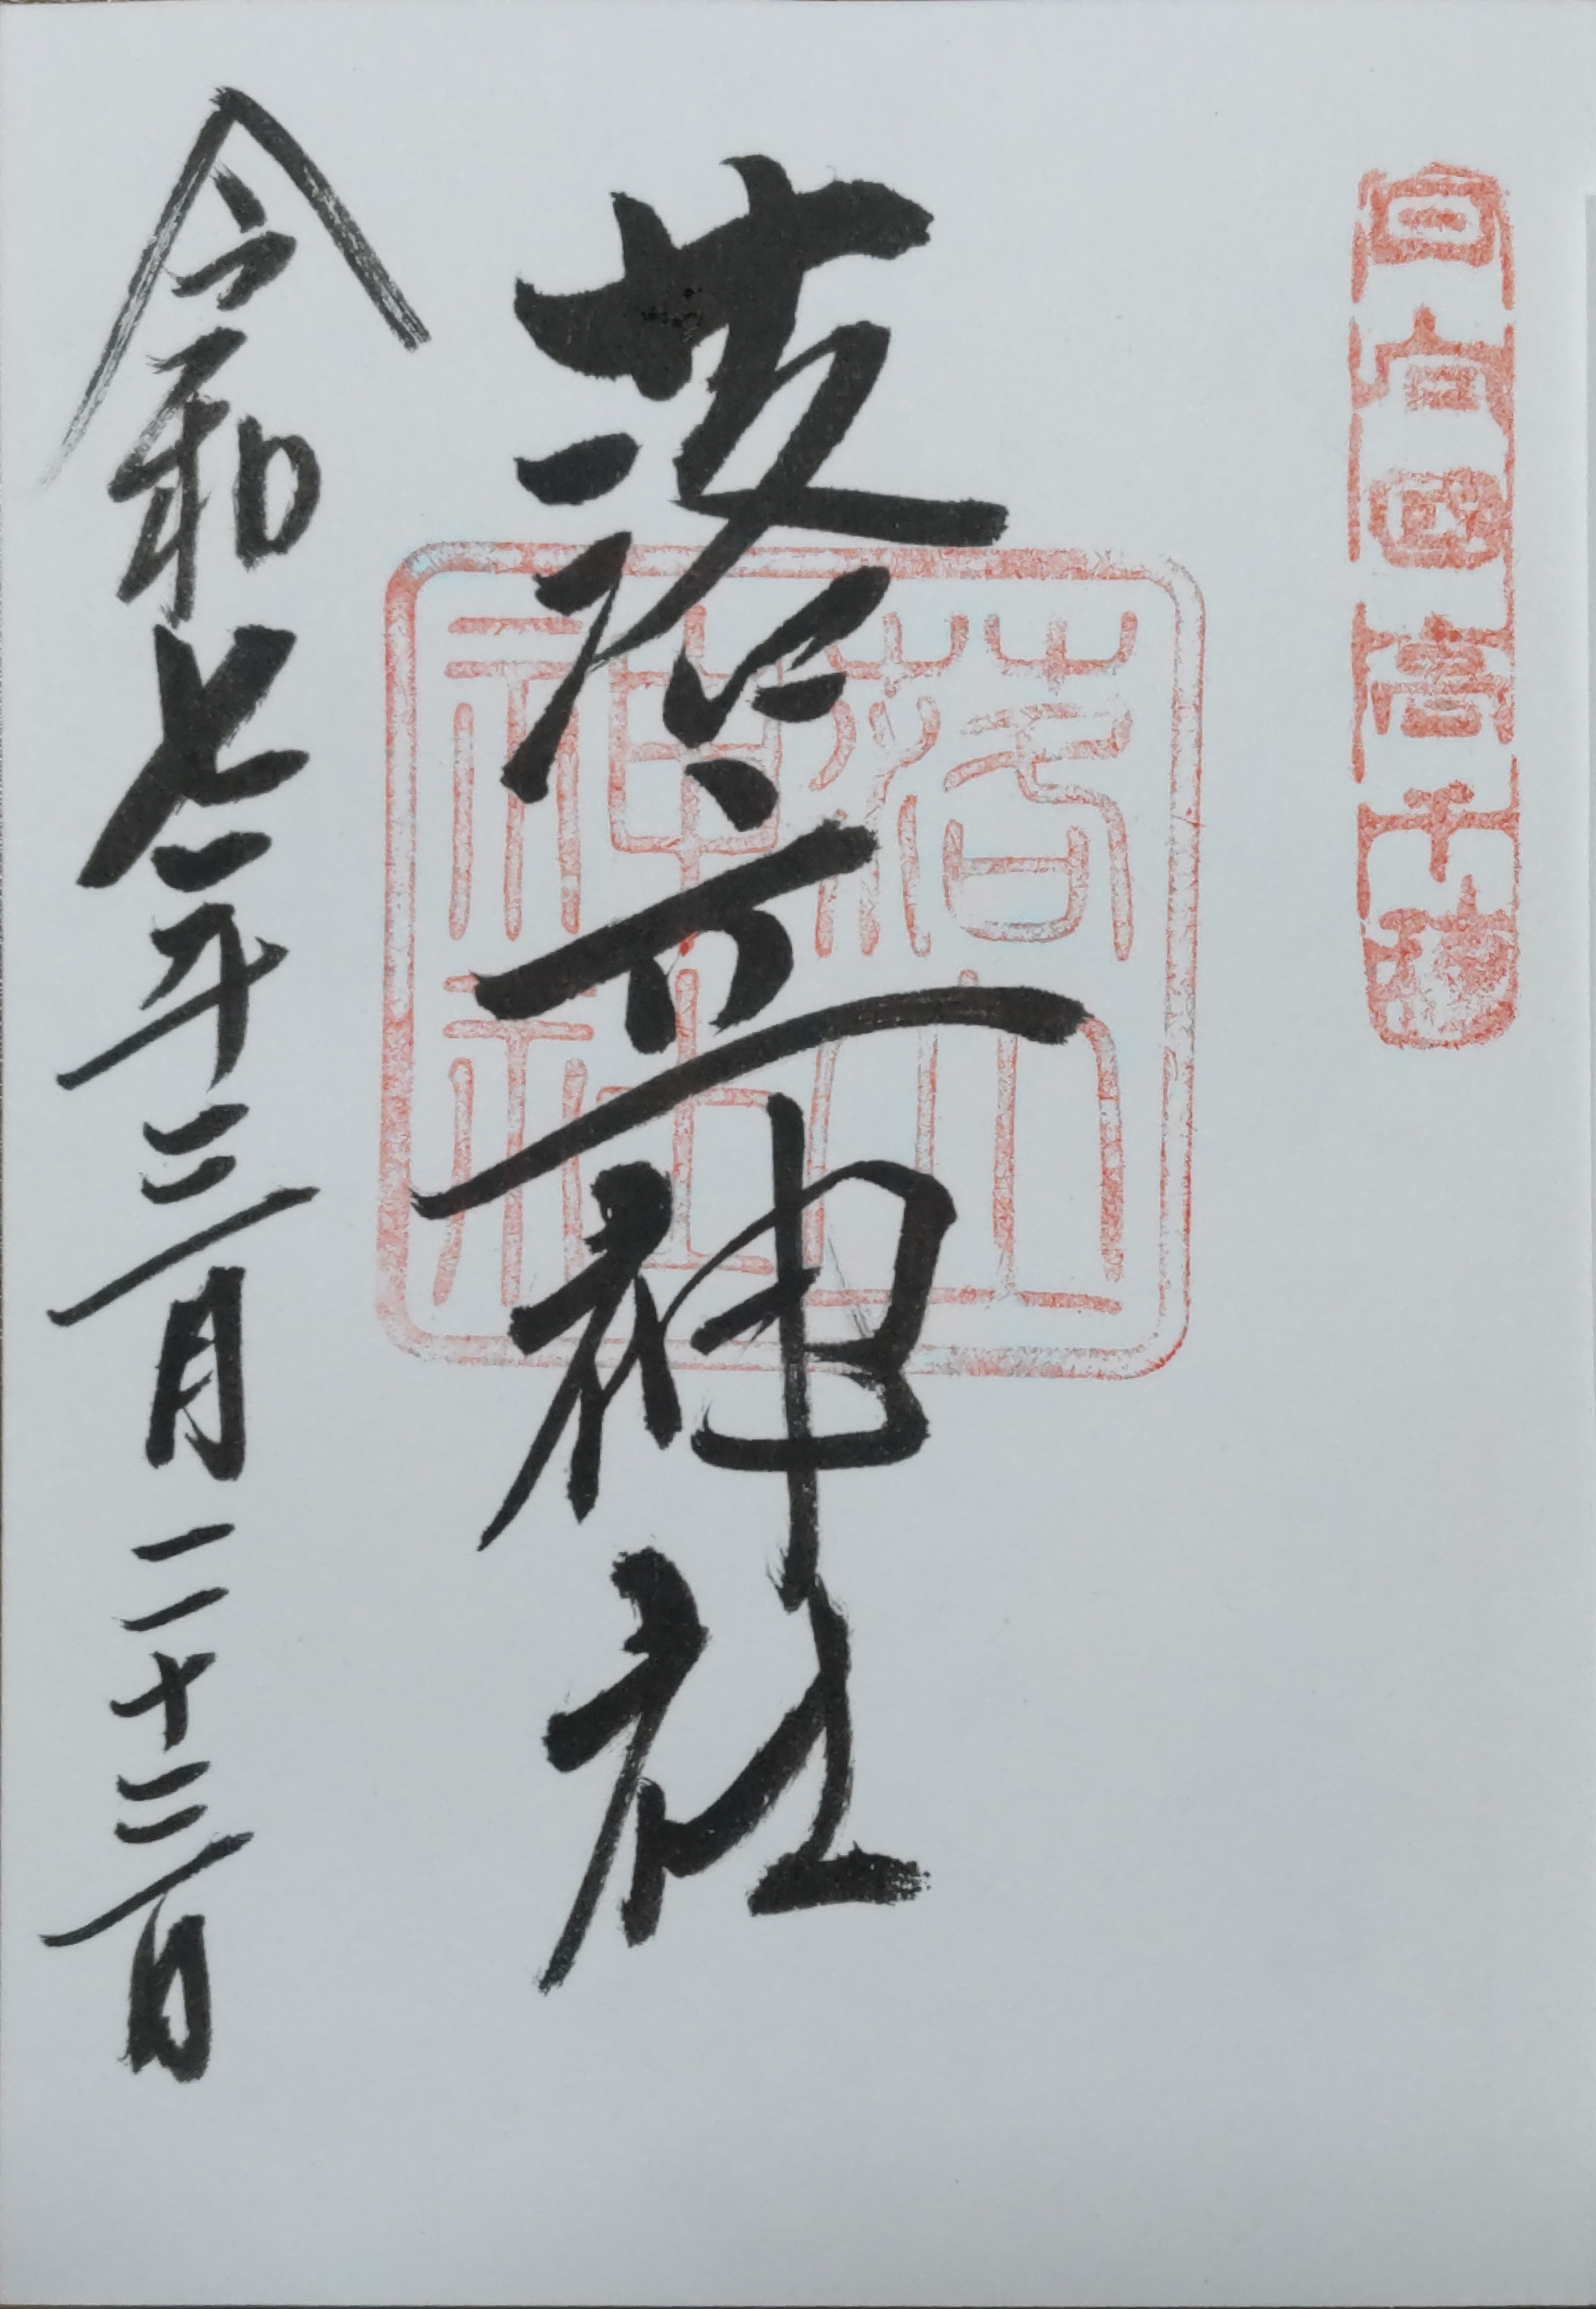 日向國高千穂
落立神社
落立
神社
令和七年三月二十三日